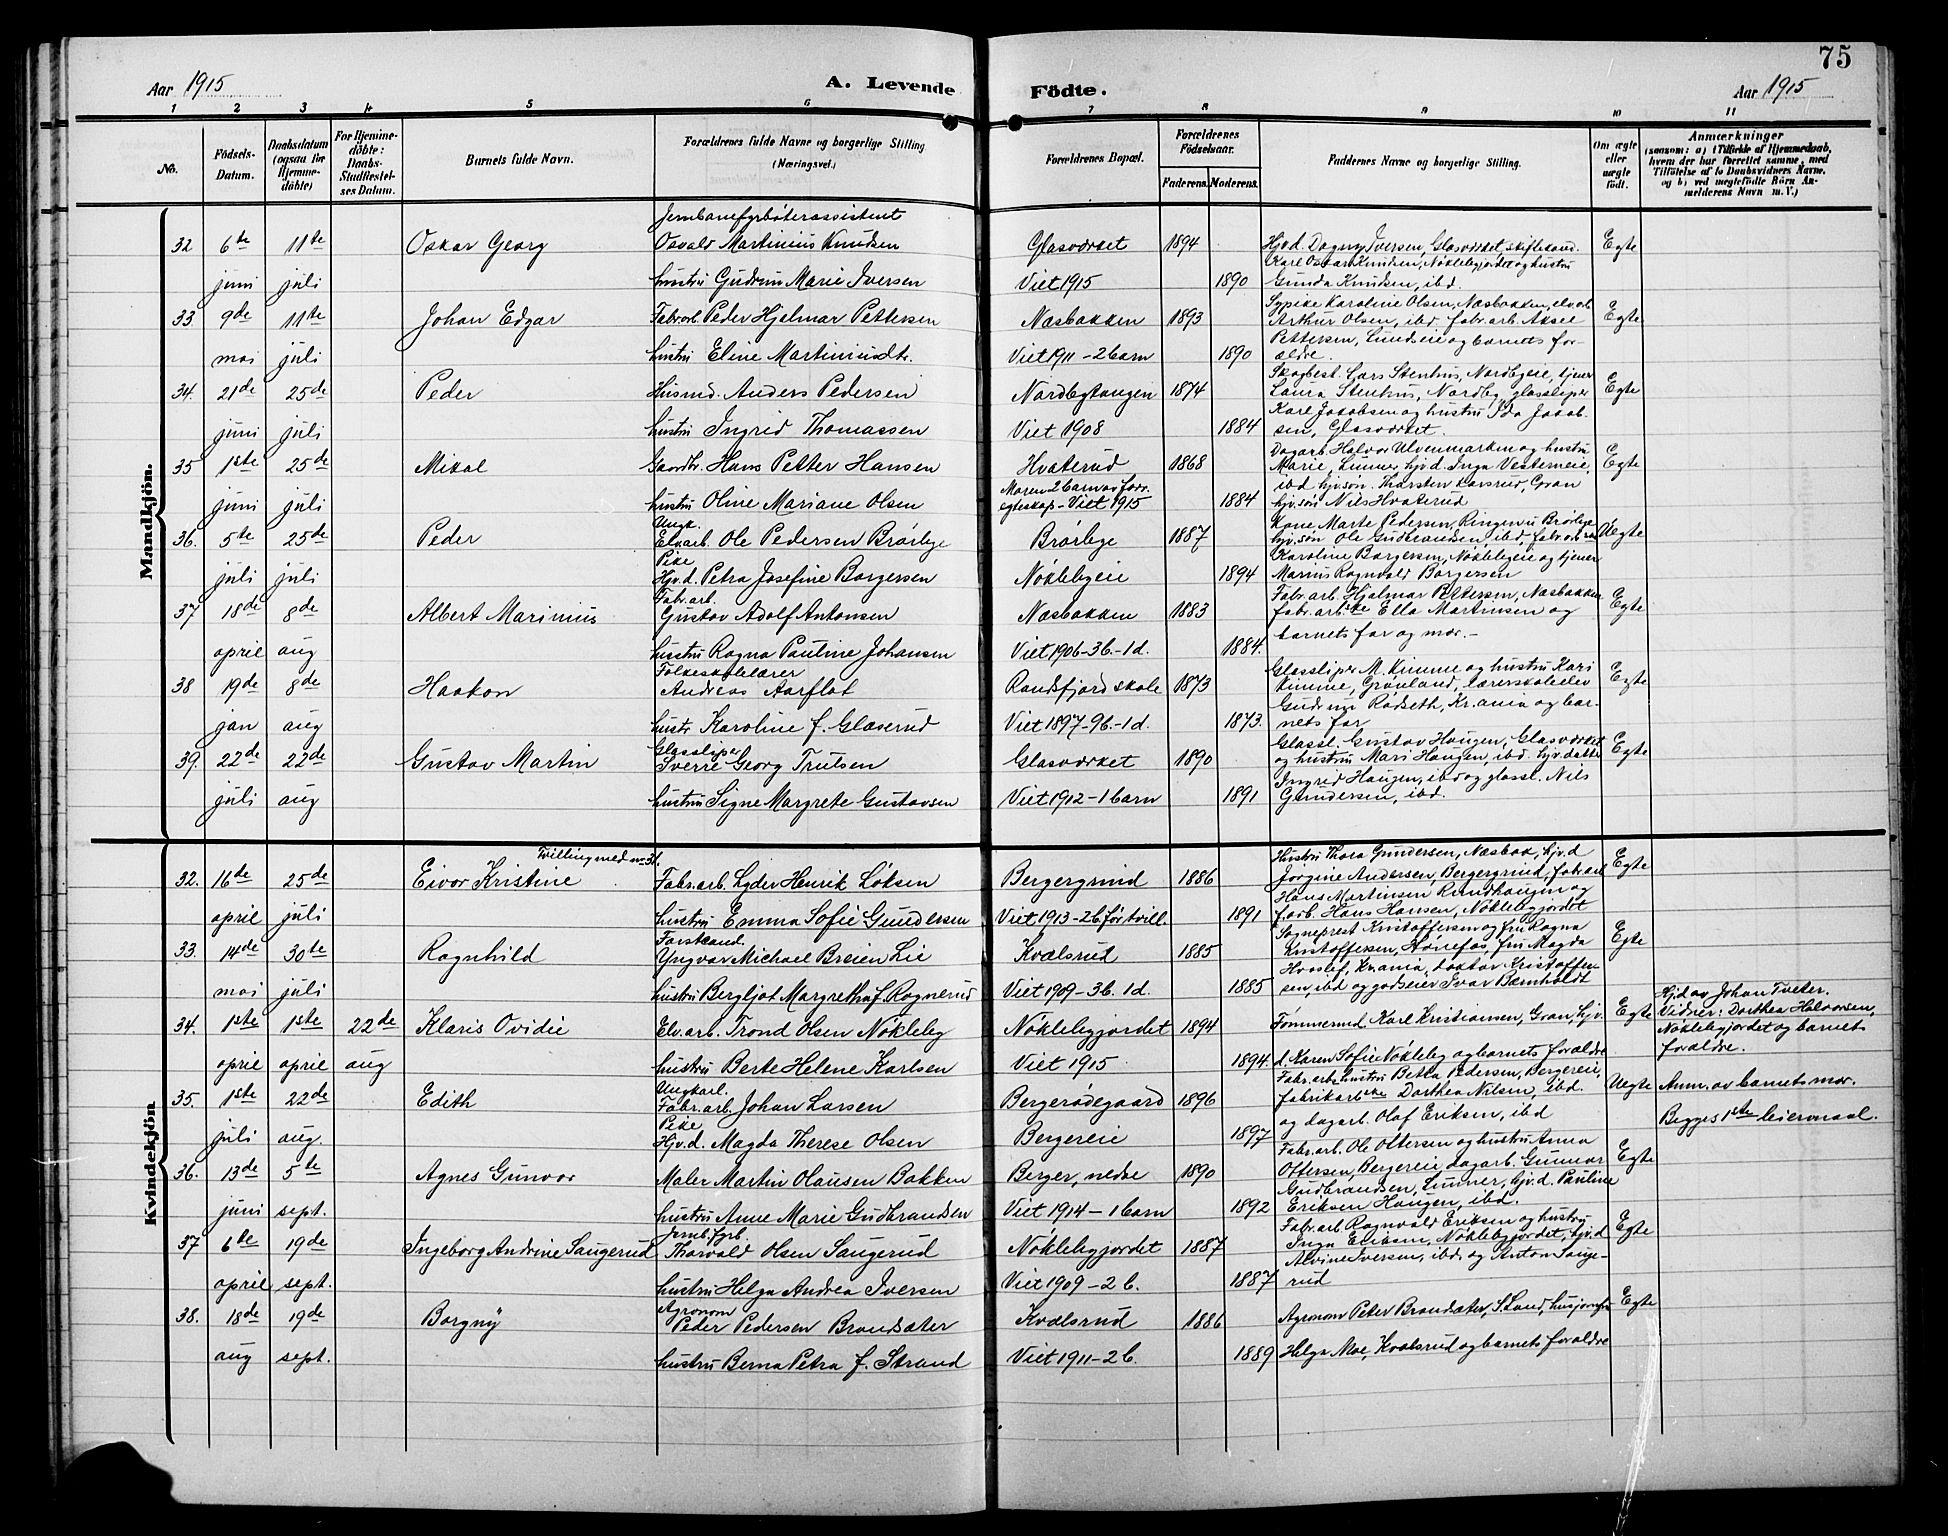 75
Aar 1915
A. Levende Födte.
Aar 1915
1 2 3 4 5 6 7 8 9 10 11
No.
Födsels-Datum.
Daabsdatum (ogsaa for Hjemme-döbte)
For Hjemme-döbte: Daabs-Stadfæstel-ses Datum.
Barnets fulde Navn.
Forældrenes fulde Navne og borgerlige Stilling
(Næringsvei.)
Forældrenes Bopæl.
Forældrenes Födselsaar.
Faderens. Moderens.
Faddernes Navne og borgerlige Stilling.
Om ægte eller uægte födt.
Anmærkninger
(saasom: a) Tilfælde af Hjemmedaab,
hvem der har forrettet samme, med
Tilföielse af to Daabsvidners Navne,
og b) ved uægtefödte Börn An-
melderens Navn m. V.)
Mandkjön.
Jernbanefyrbøterassistent
32 6te 11te Oskar Georg Osvald Martinius Knudsen Glasværket 1894 Hjv.d. Dagny Iversen, Glasværket, skiftekond. Egte
Karl Oskar Knudsen, Nøklebygjordet og hustru
juni juli hustru Gudrun Marie Iversen Viet 1915 1890 Gunda Knudsen, ibd.
33 9de 11te Johan Edgar Fabr.arb. Peder Hjelmar Pettersen Næsbakken 1893 Arthur Olsen, ibd, fabr.arb. Aksel Egte
mai juli hustru Eline Martiniusdtr. Viet 1911 - 2 barn 1890 Pettersen, Lundseie og barnets for-
ældre.
34. 21de 25de Peder Husmd. Anders Pedersen Nordbytangen 1874 Laura Stenhus, Nordby, glassliper Egte
Karl Jakobsen og hustru Ida Jakob-
juni juli hustru Ingrid Thomassen Viet 1908 1884 sen, Glasværket.
35 1ste 25de Mikal Gaardbr. Hans Petter Hansen Hvaterud 1868 Marie, Lunner, hjv.d. Inga Vestemeie, Egte
Moren 2 barn av forr.
juni juli hustru Oline Mariane Olsen egteskap - Viet 1915 1884 hjv.søn Nils Hvaterud
Ungk.
36. 5te 25de Peder Elvarb. Ole Pedersen Brørbye Brørbye 1887 hjv.søn Ole Gudbrandsen, ibd, Uegte
Pike Karoline Borgersen, Nøklebyeie og tjener
juli juli Hjv.d. Petra Josefine Borgersen Nøklebyeie 1894 Marius Ragnvald Borgersen
Fabr.arb. Fabr.arb. Hjalmar Pettersen, Næsbakken
37 18de 8de Albert Marinius Gustav Adolf Antonsen Næsbakken 1883 fabr.arbske Ella Martinsen og Egte
barnets far og mor.-
april aug hustru Ragna Pauline Johansen Viet 1906 - 3b. - 1d. 1884.
Folkeskolelærer Glassliper M. Kimme og hustru Kari
38 19de 8de Haakon Andreas Aarflot Randsfjord skole 1873 Kimme, Grønland, lærerskoleelev Egte
Gudrun Rødseth, Kr.ania og bar-
jan aug hustr Karoline f. Glaserud Viet 1897 - 9b. - 1d. 1873. nets far
Glassliper Glassl. Gustav Haugen, Glasværket
39. 22de 22de Gustav Martin Sverre Georg Trulsen Glasværket 1890 og hustru Mari Haugen, ibd. hjv.datter Egte
Ingrid Haugen, ibd og glassl. Nils
juli aug hustru Signe Margrete Gustavsen Viet 1912 - 1 barn 1891 Gundersen, ibd.
Kvindekjön
Tvilling med nr 31. Hustru Thora Gundersen, Næsbak, hjv.d
32. 16de 25de Eivor Kristine Fabr.arb. Lyder Henrik Løksen Bergergrind 1886 Jørgine Andersen, Bergergrind, fabr.arb Egte
Hans Martinsen Rundhaugen og
april juli hustru Emma Sofie Gundersen Viet 1913 - 2b før tvill. 1891 farb. Hans Hansen, Nøklebygjordet
Forstkand. Sogneprest Kristoffersen og fru Ragna
33. 14de 30te Ragnhild Yngvar Michael Breien Lie Kvalsrud 1885 Kristoffersen, Hønefos, fru Magda Egte
mai juli hustru Bergljot Margretha f. Rognerud Viet 1909 - 3b. 1d. 1885 sen, ibd og godseier Ivar Bernholdt
Hjd av Johan Tveter.
34. 1ste 1ste 22de Klaris Ovidie Elv.arb. Trond Olsen Nøkleby Nøklebygjordet 1894 Tømmermd. Karl Kristiansen, Gran, hjv. Egte Vidner: Dorthea Halvorsen,
Nøklebygjordet og barnets
april april aug hustru Berte Helene Karlsen Viet 1915 1894. d. Karen Sofie Nøkleby og barnets forældre forældre.
Ungkarl. Fabr.arbs hustru Betta Pedersen, Bergereie,
35. 1ste 22de Edith Fabr.arb. Johan Larsen Bergerødegaard 1896 fabrikarbske Dorthea Nilsen, ibd. Uegte Anm. av barnets mor.
Pike og dagarb. Olaf Eriksen, ibd
juli aug. Hjv.d. Magda Therese Olsen Bergereie 1897 Begges 1ste leiermaal.
Fabr.arb. Ole Ottersen og hustru Anna
36. 13de 5te Agnes Gunvor Maler Martin Olausen Bakken Berger, nedre 1890 Ottersen, Bergereie, dagarb. Gunnar Egte
Gudbrandsen, Lunner, hjv.d. Pauline
juni sept. hustru Anne Marie Gudbrandsen Viet 1914 - 1 barn 1892 Eriksen Haugen, ibd.
Jernb.fyrb. Fabr.arb. Ragnvald Eriksen og hustru
37 6te 19de Ingeborg Andrine Saugerud Thorvald Olsen Saugerud Nøklebygjordet 1887 Inga Eriksen, Nøklebygjordet, hjv.d Egte
Alvine Iversen, ibd. og Anton Sauge-
april sept. hustru Helga Andrea Iversen Viet 1909 - 2 b. 1887 rud
Agronom
38. 18de 19de Borgny Peder Pedersen Brandsæter Kvalsrud 1886 Agronom Peter Brandsæter, S. Land, husjomfru Egte
aug sept. hustru Berna Petra f. Strand Viet 1911 - 2 b. 1889 Helga Moe, Kvalsrud og barnets forældre